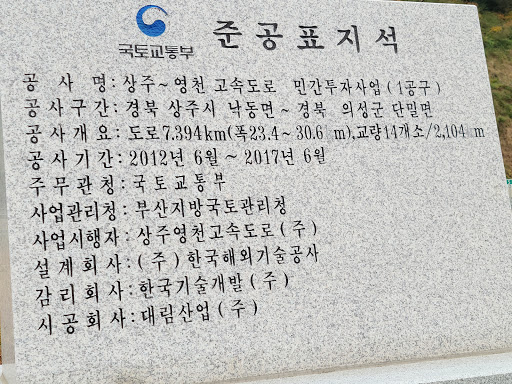 국토교통부 준공표지석
공 사 명: 상주~영천 고속도로 민간투자사업 (1공구)
공사구간: 경북 상주시 낙동면~경북 의성군 단밀면
공사개요: 도로7.394km(폭23.4~30.6 m),교량14개소/2,104 m
공사기간: 2012년 6월 ~ 2017년 6월
주무관청: 국토교통부
사업관리청: 부산지방국토관리청
사업시행자: 상주영천고속도로 (주)
설계회사: (주) 한국해외기술공사
감리회사: 한국기술개발 (주)
시공회사: 대림산업 (주)